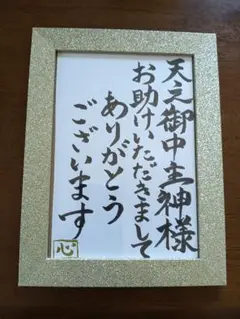 天之御中主神様
お助けいただきまして
ありがとう
ございます
心